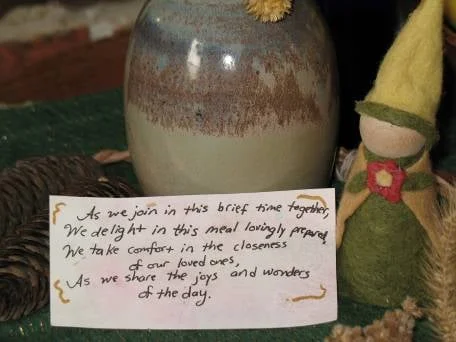 As we join in this brief time together,
We delight in this meal lovingly prepared,
We take comfort in the closeness
of our loved ones,
As we share the joys and wonders
of the day.